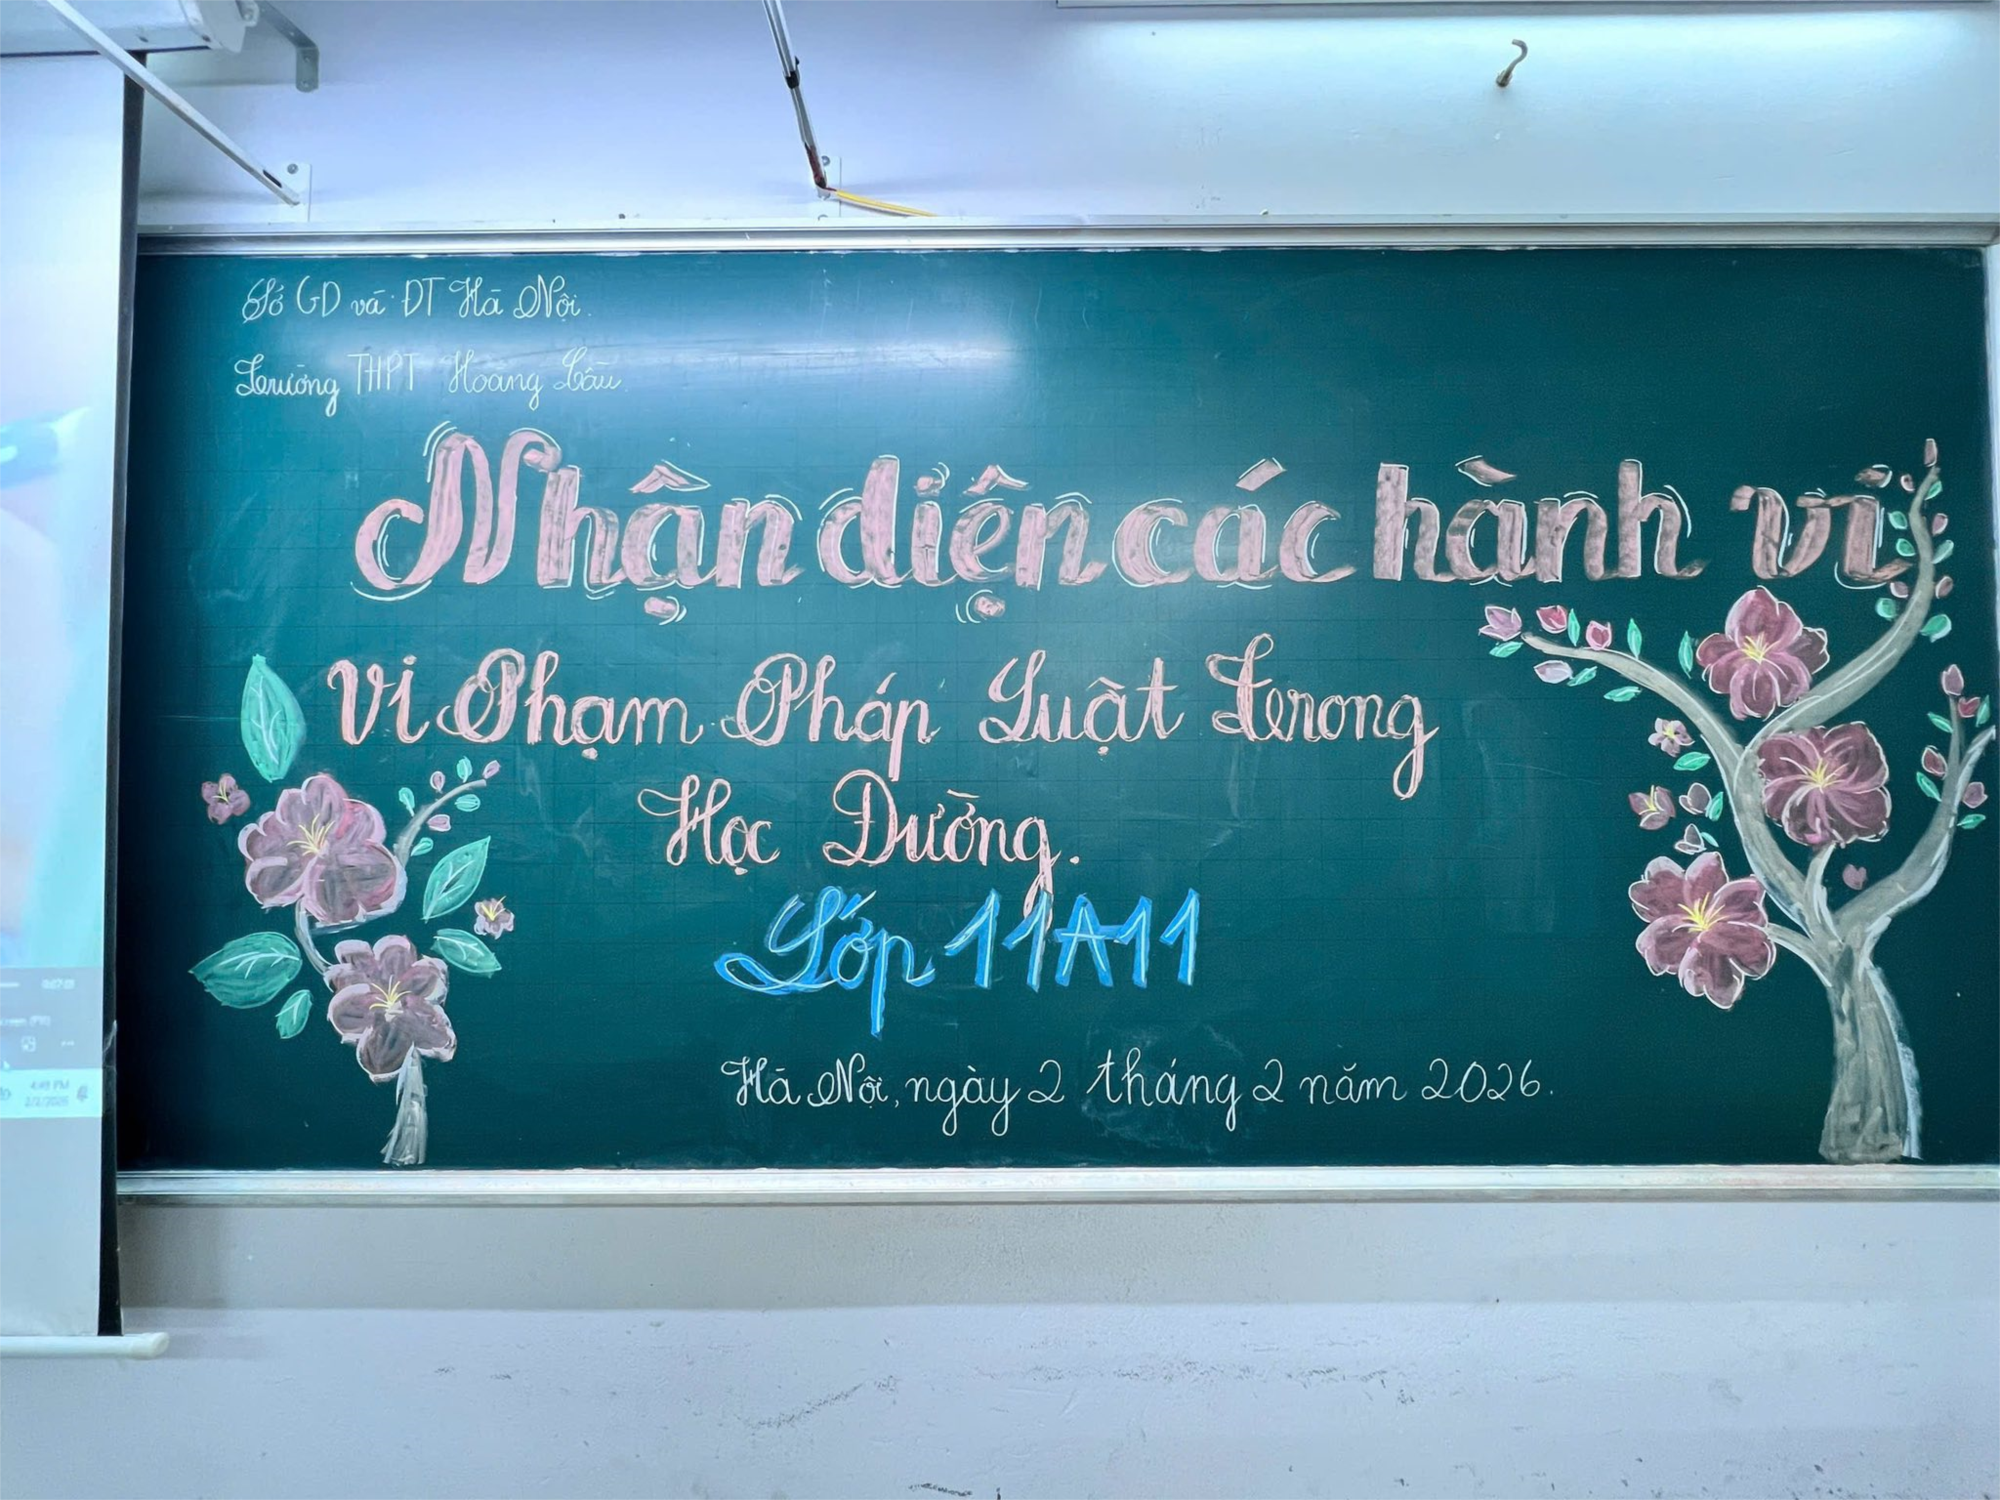 Sở GD và ĐT Hà Nội.
Trường THPT Hoàng Cầu
Nhận diện các hành vi
Vi Phạm Pháp Luật Trong
Học Đường.
Lớp 11A11
Hà Nội, ngày 2 tháng 2 năm 2026.
4:49 PM
2/2/2026